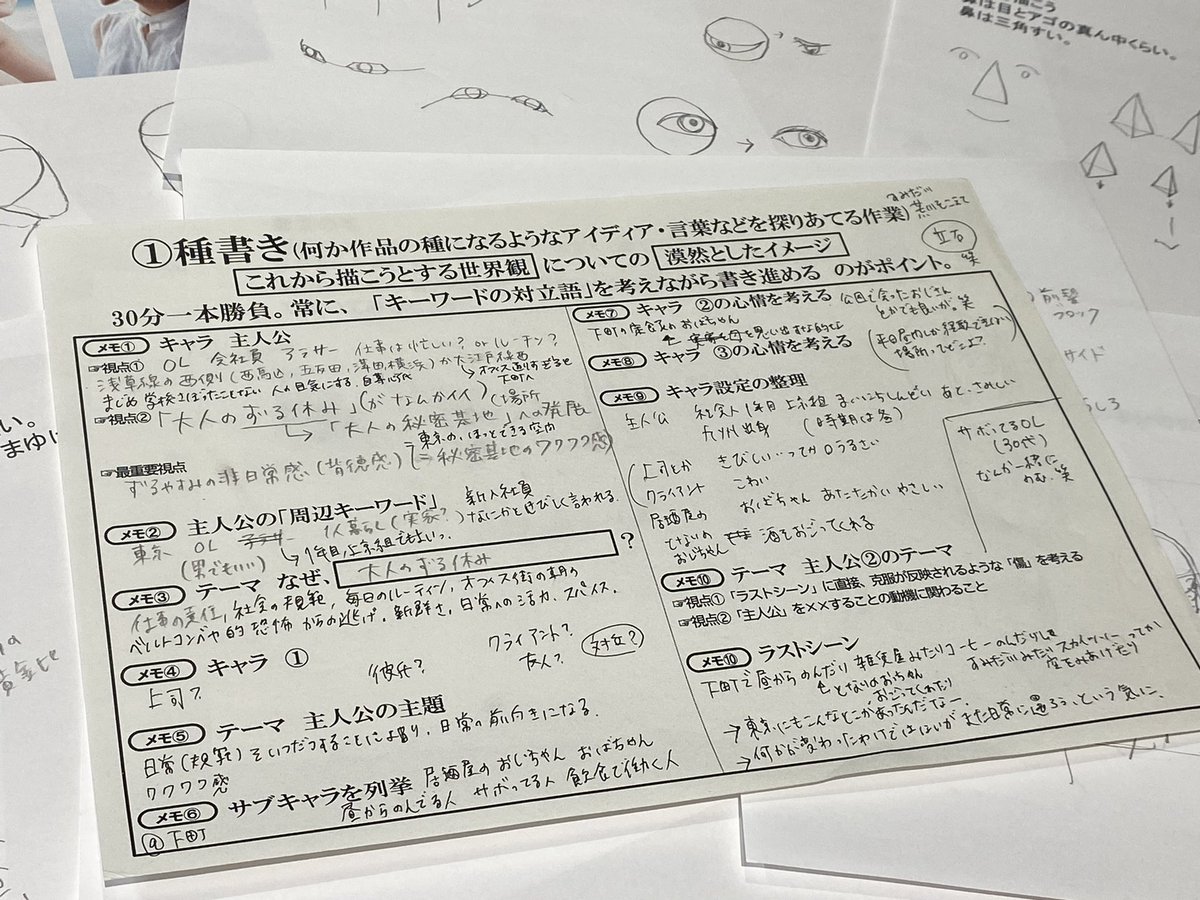 鼻は目とアゴの真ん中くらい。
鼻は三角すい。
前髪
ブロック
サイド
すみだ川
荒川をこえて
立石
笑
①種書き(何か作品の種になるようなアイディア・言葉などを探りあてる作業)
これから描こうとする世界観 についての 漠然としたイメージ
30分一本勝負。常に、「キーワードの対立語」を考えながら書き進める のがポイント。
メモ① キャラ 主人公
☞視点① OL 会社員 アラサー 仕事は忙しい? or ルーチン?
浅草線の西側(西馬込、五反田、横浜)か大江戸線西
まじめ 学校さぼったことない 人の目気にする
下町へ
☞視点② 「大人のずる休み」(がなんかイイ)
場所
「大人の秘密基地」への発展
東京の、ほっとできる空間
☞最重要視点
ずるやすみの非日常感(背徳感)(=秘密基地のワクワク感)
メモ② 主人公の「周辺キーワード」 新入社員
東京 OL アラサー 1人暮らし(実家?) なにかときびしく言われる。
(男でもいい) 1年目、上京組でもいいっ。
メモ③ テーマ なぜ、 大人のずる休み ?
仕事の責任、社会の規範、毎日のルーティン、オフィス街の朝の
ベルトコンベヤ的恐怖 からの逃げ。新鮮さ。日常への活力、スパイス。
メモ④ キャラ ①
上司? 彼氏? クライアント? 友人? 対立?
メモ⑤ テーマ 主人公の主題
日常(規範)をいつだつすることにより、日常の前向きになる。
ワクワク感
メモ⑥ サブキャラを列挙 居酒屋のおじちゃん おばちゃん
昼からのんでる人 サボってる人 飲食で働く人
@下町
メモ⑦ キャラ ②の心情を考える 公園で会ったおじさん
とかでも良いが。笑
下町の定食屋のおばちゃん
メモ⑧ キャラ ③の心情を考える
(平日昼間しか経験できない
場所ってどこよ?)
メモ⑨ キャラ設定の整理
主人公 社会人1年目 上京組 まいにちしんどい あと、さみしい
九州出身 (時期は冬)
上司とか きびしいってか口うるさい
クライアント こわい
居酒屋の おばちゃん あたたかい やさしい
となりの
おじちゃん 酒をおごってくれる
サボってるOL
(30代)
なんか一緒に
のむ。笑
メモ⑩ テーマ 主人公②のテーマ
☞視点① 「ラストシーン」に直接、克服が反映されるような「傷」を考える
☞視点② 「主人公」を××することの動機に関わること
メモ⑩ ラストシーン
下町で昼からのんだり 雑貨屋みたりコーヒーのんだりして
となりのおっちゃん
おごってくれたり
すみだ川みたり スカイツリーってか
空をみあげたり
→東京にもこんなとこがあったんだなー
→何かが変わったわけではないが また日常に還ろう、という気に。